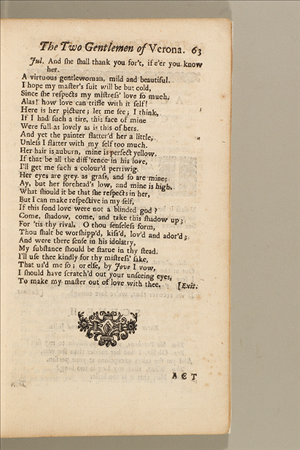 The Two Gentlemen of Verona. 63
Jul. And she shall thank you for't, if e'er you know
her.
A virtuous gentlewoman, mild and beautiful.
I hope my master's suit will be but cold,
Since she respects my mistress' love so much.
Alas! how love can trifle with it self!
Here is her picture; let me see; I think,
If I had such a tire, this face of mine
Were full as lovely as is this of hers.
And yet the painter flatter'd her a little,
Unless I flatter with my self too much.
Her hair is auburn, mine is perfect yellow.
If that be all the diff'rence in his love,
I'll get me such a colour'd perriwig.
Her eyes are grey as grass, and so are mine;
Ay, but her forehead's low, and mine is high.
What should it be that she respects in her,
But I can make respective in my self,
If this fond love were not a blinded god?
Come, shadow, come, and take this shadow up;
For 'tis thy rival. O thou senseless form,
Thou shalt be worshipp'd, kiss'd, lov'd and ador'd;
And were there sense in his idolatry,
My substance should be statue in thy stead.
I'll use thee kindly for thy mistress' sake,
That us'd me so; or else, by Jove I vow,
I should have scratch'd out your unseeing eyes,
To make my master out of love with thee. [Exit.
ACT